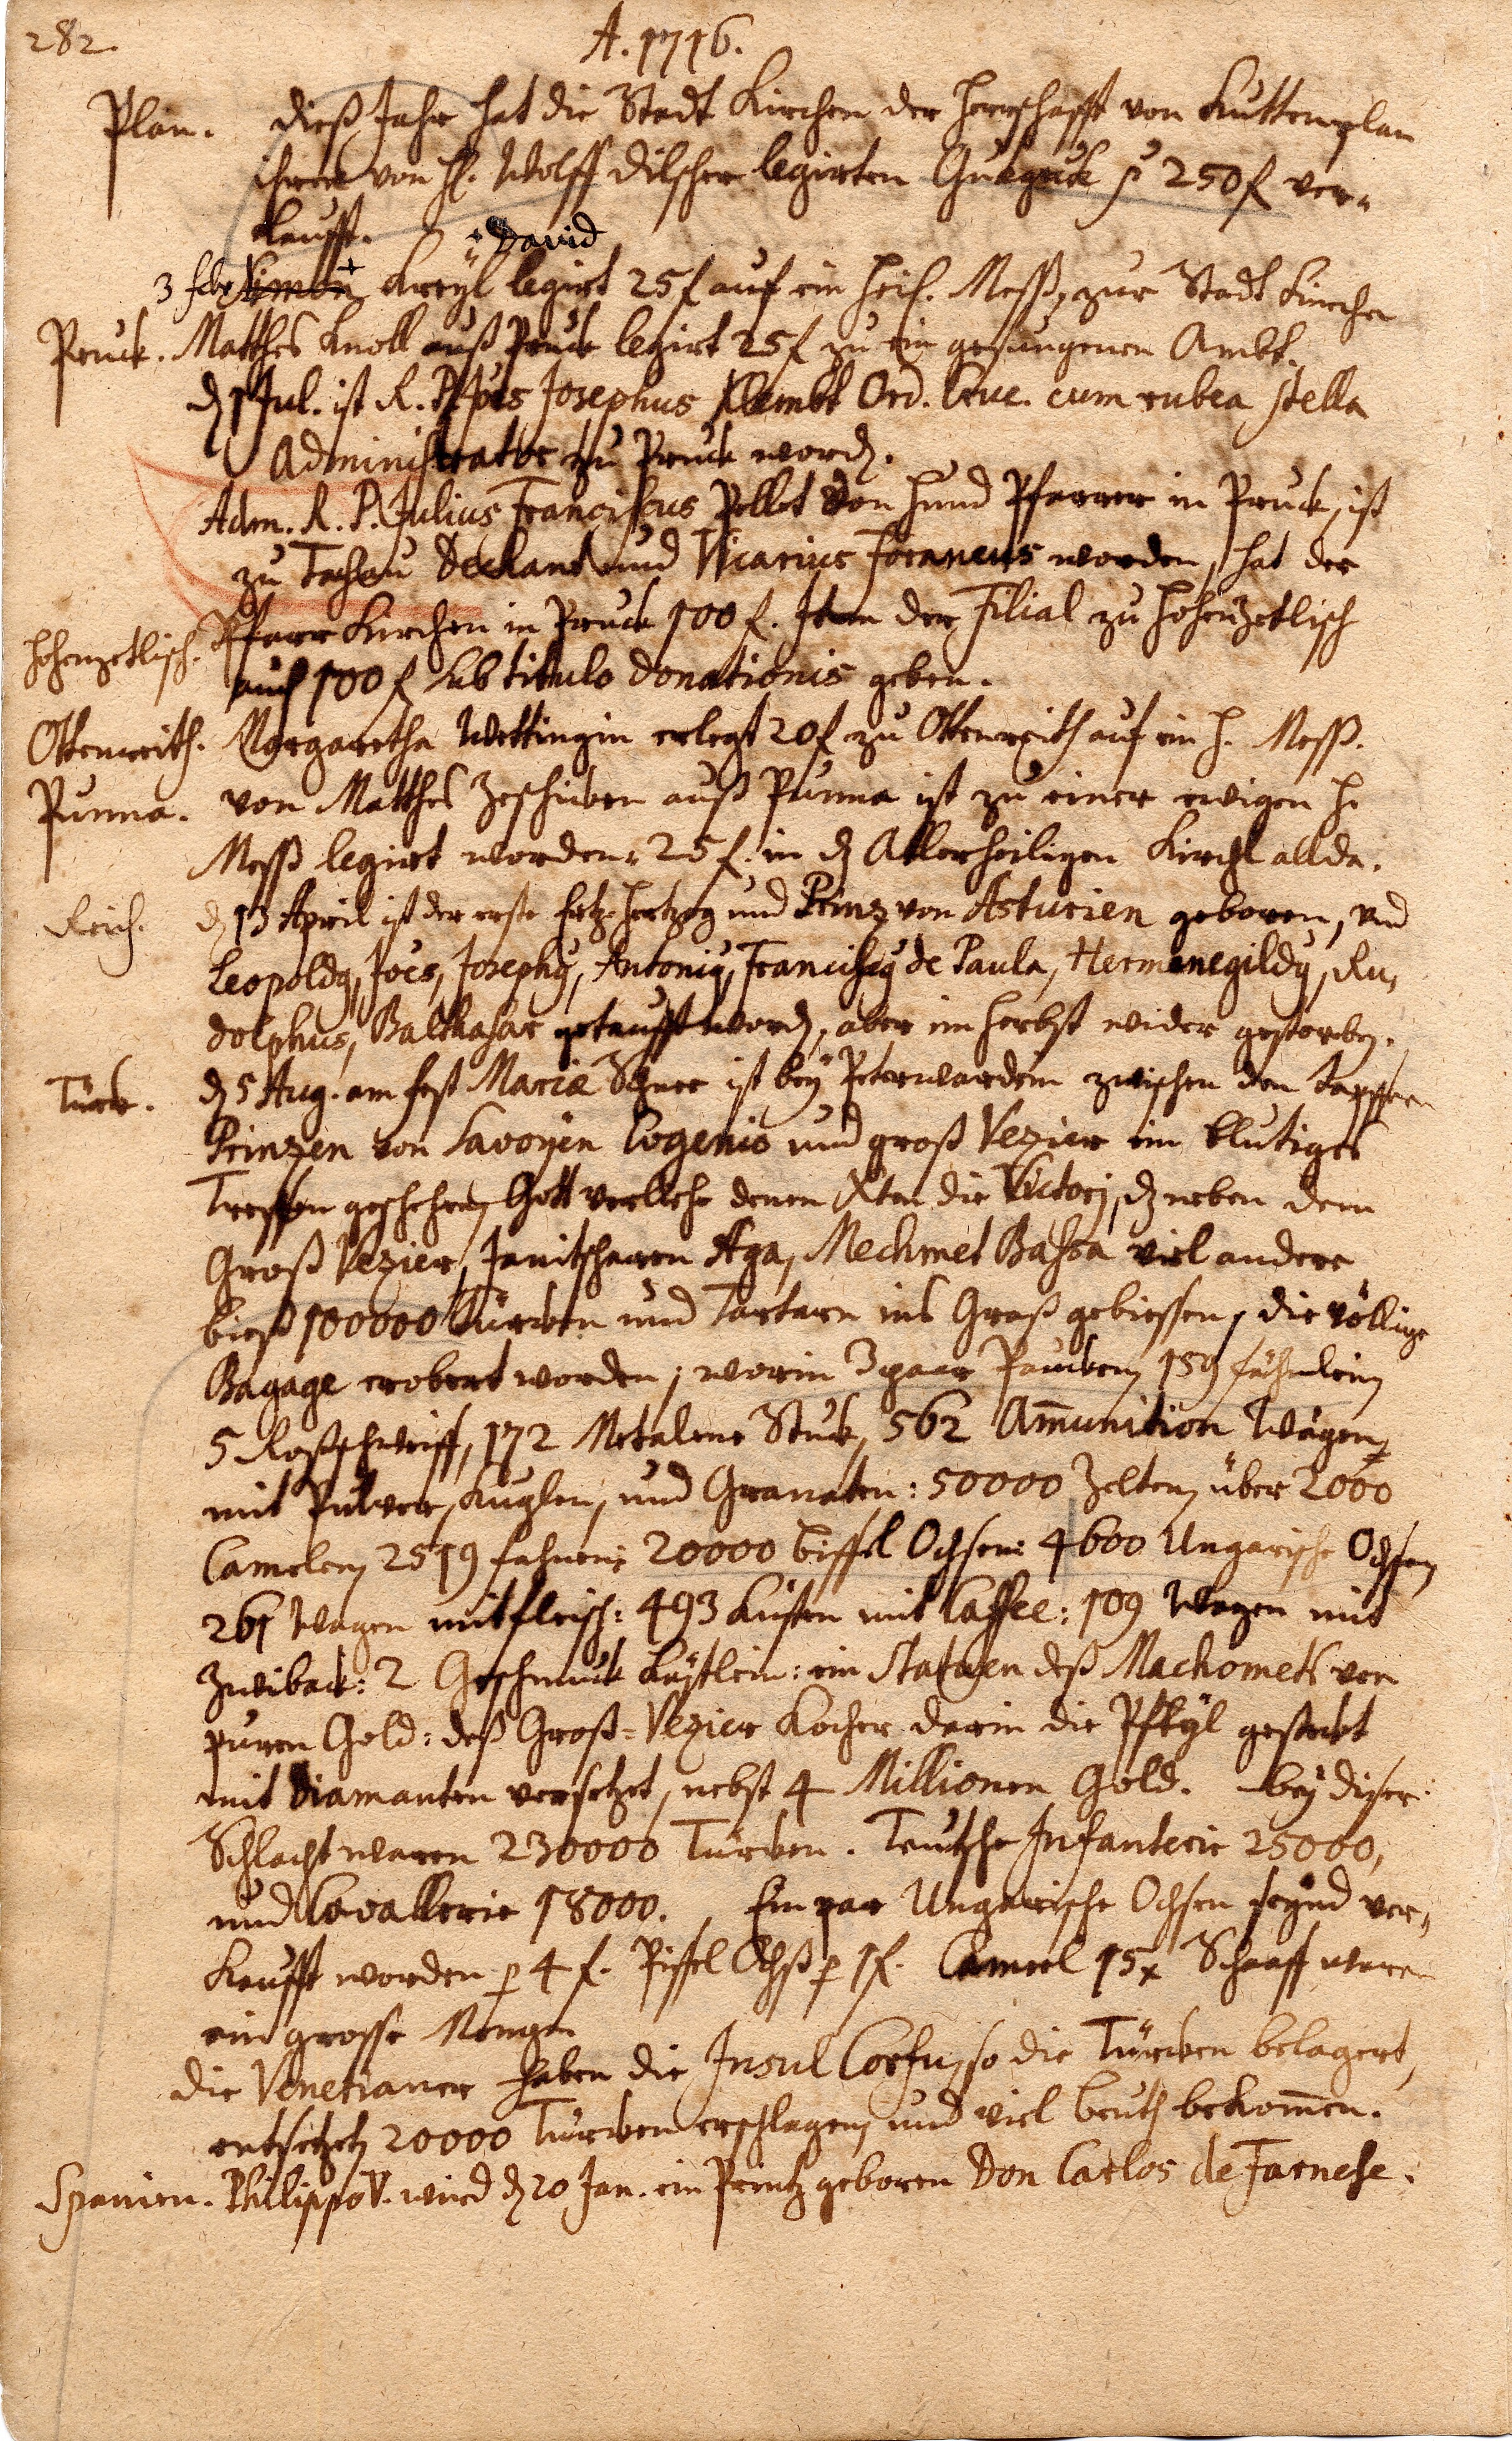 282.
A. 1716.
Plan. Dieß Jahr hat die Stadt Kirchen der Herrschafft von Kuttenplan
ihren von H. Wolff Dilscher legirten p 250 f ver-
kaufft.
+ David
3 febr Simon + Kreyl legirt 25 f auf ein heil. Meß, zur Stadt Kirchen
Pruck. Matthes Knoll auß Pruck legirt 25 f zu ein gesungenen Ambt.
dn 1 Jul. ist R. P. Jois Josephus Klembt Ord. Cruc. cum rubea stella
Administrator zu Pruck word.
Adm. R. P. Julius Franciscus Pellet von Hund Pfarrer in Pruck, ist
zu Tachau Dechant und Vicarius foraneus worden, hat der
Hohenzetlisch. Pfarr Kirchen in Pruck 100 f. Item der Filial zu Hohenzetlisch
auch 100 f sub titulo donationis geben.
Ottenreith. Margaretha Wettingin erlegt 20 f zu Ottenreith auf ein H. Meß.
Purma. von Matthes Zeschirben auß Purma ist zu einer ewigen H.
Meß legirt worden 25 f. in d Allerheiligen Kirchl allda.
Reich. d 13 April ist der erste Ertz-Hertzog und Prinz von Asturien geboren, und
Leopoldq, Joes, Josephq, Antoniq, Franciscq de Paula, Hermenegildq, Ru-
dolphus, Balthasar getaufft word, aber im Herbst wider gestorben.
Türk. d 5 Aug. am fest Mariæ Schnee ist bey Peterwardein zwischen den tapffern
Prinzen von Savoyen Eugenio und groß Vezier ein blutiges
Treffen geschehen, Gott verliehe denen Xten die Victori, dz neben dem
Groß Vezier, Janitscharen Aga, Mechmet Bassa viel andere
bieß 100000 Türken und Tartarn ins Graß gebiessen, die völlige
Bagage erobert worden; worin 3 paar Paucken, 159 fähnlein,
5 Roßschweiff, 172 Metalene Stuck, 562 Amunition Wägen,
mit Pulver, Kuglen, und Granaten: 50000 Zelten, über 2000
Camelen, 2519 fahnen: 20000 biffel Ochsen: 4600 Ungarische Ochsen,
261 Wagen mit fleisch: 493 Kisten mit Caffee: 109 Wagen mit
Zwiback: 2 Geschmuck Kästlein: ein Statuen deß Machomets von
puren Gold: deß Groß-Vezier Kocher darin die Pfeyl gesteckt
mit Diamanten versetzet, nebst 4 Millionen Gold. bey diser
Schlacht waren 230000 Türken. Teutsche Infanterie 25000,
und Cavallerie 18000. Ein par Ungarische Ochsen seynd ver-
kaufft worden p 4 f. Piffel Ochß p 1 f. Cameel 15 x Schaaff waren
ein grosse Menge.
Die Venetianer haben die Insul Corfu, so die Türken belagert,
entsetzet, 20000 Türken erschlagen, und viel beuth bekomen.
Spanien. Philippo V. wird d 20 Jan. ein Printz geboren Don Carlos de Farnese.